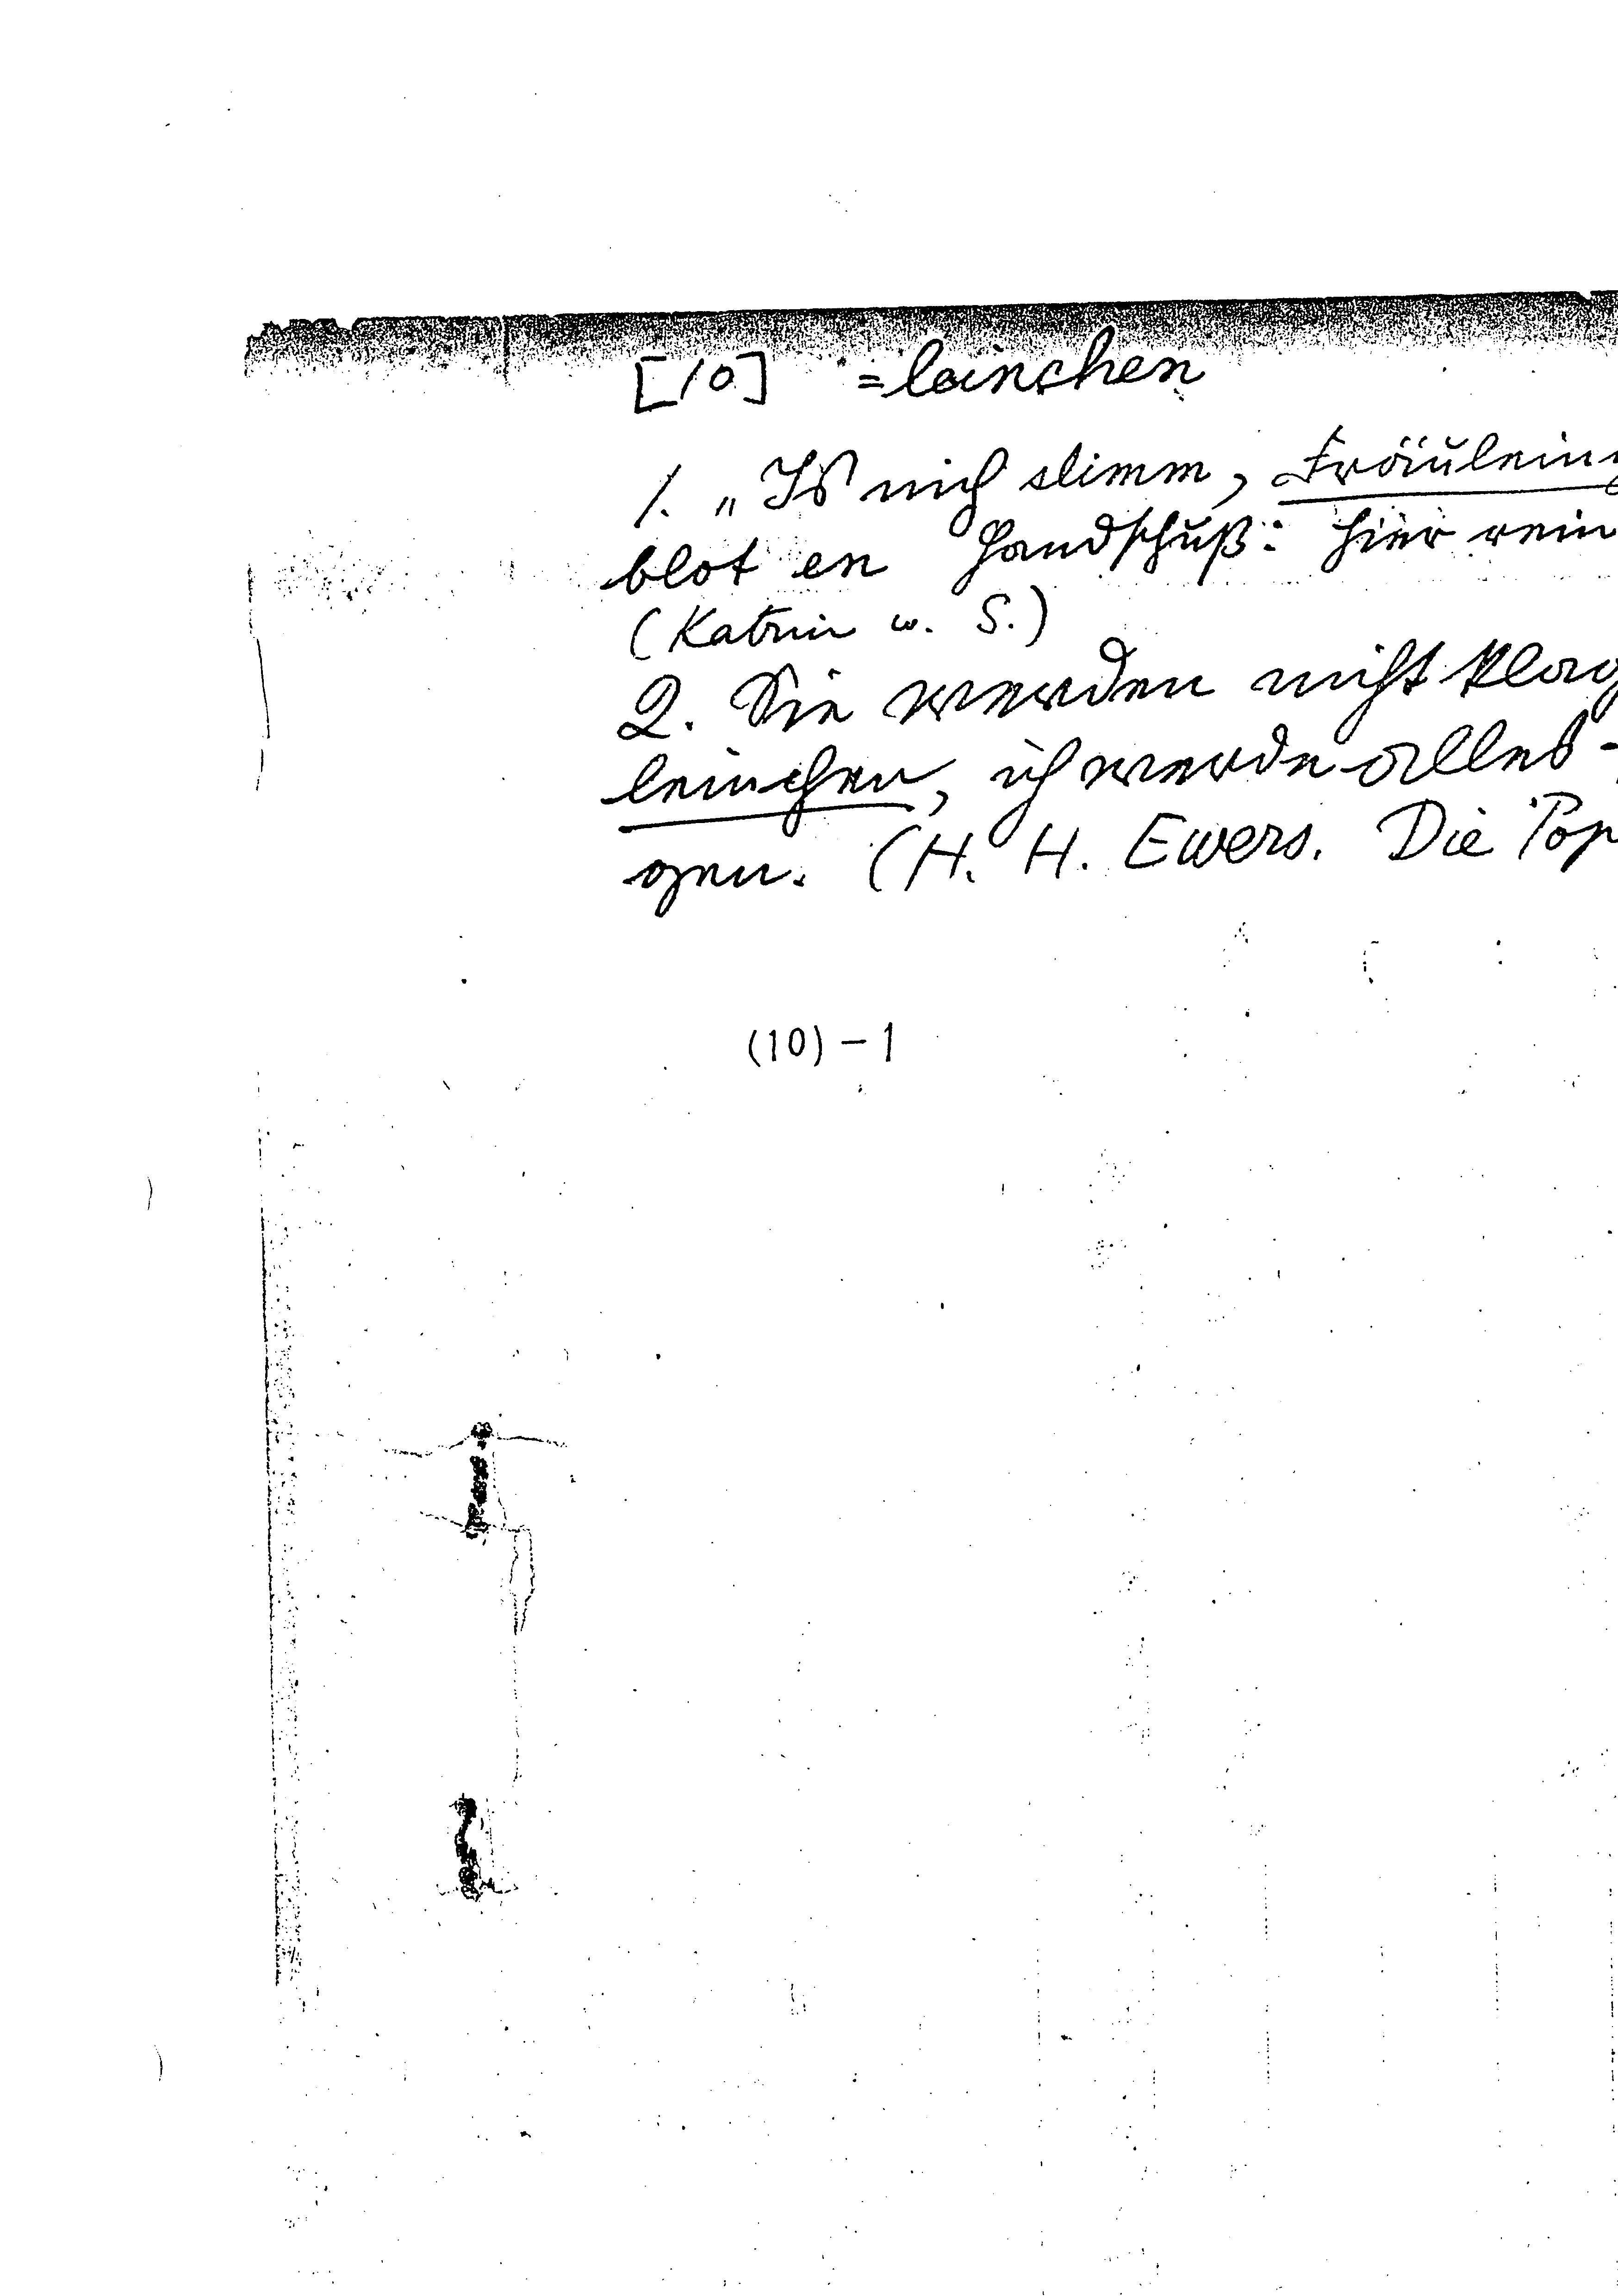 [10] =leinchen
1. „Is nich slimm, Fräulein
blot en Handschuh: hier rein
(Katrin w. S.)
2. Sie werden nicht klag
leinchen, ich werde alles
gen. (H. H. Ewers. Die Pop
(10)-1